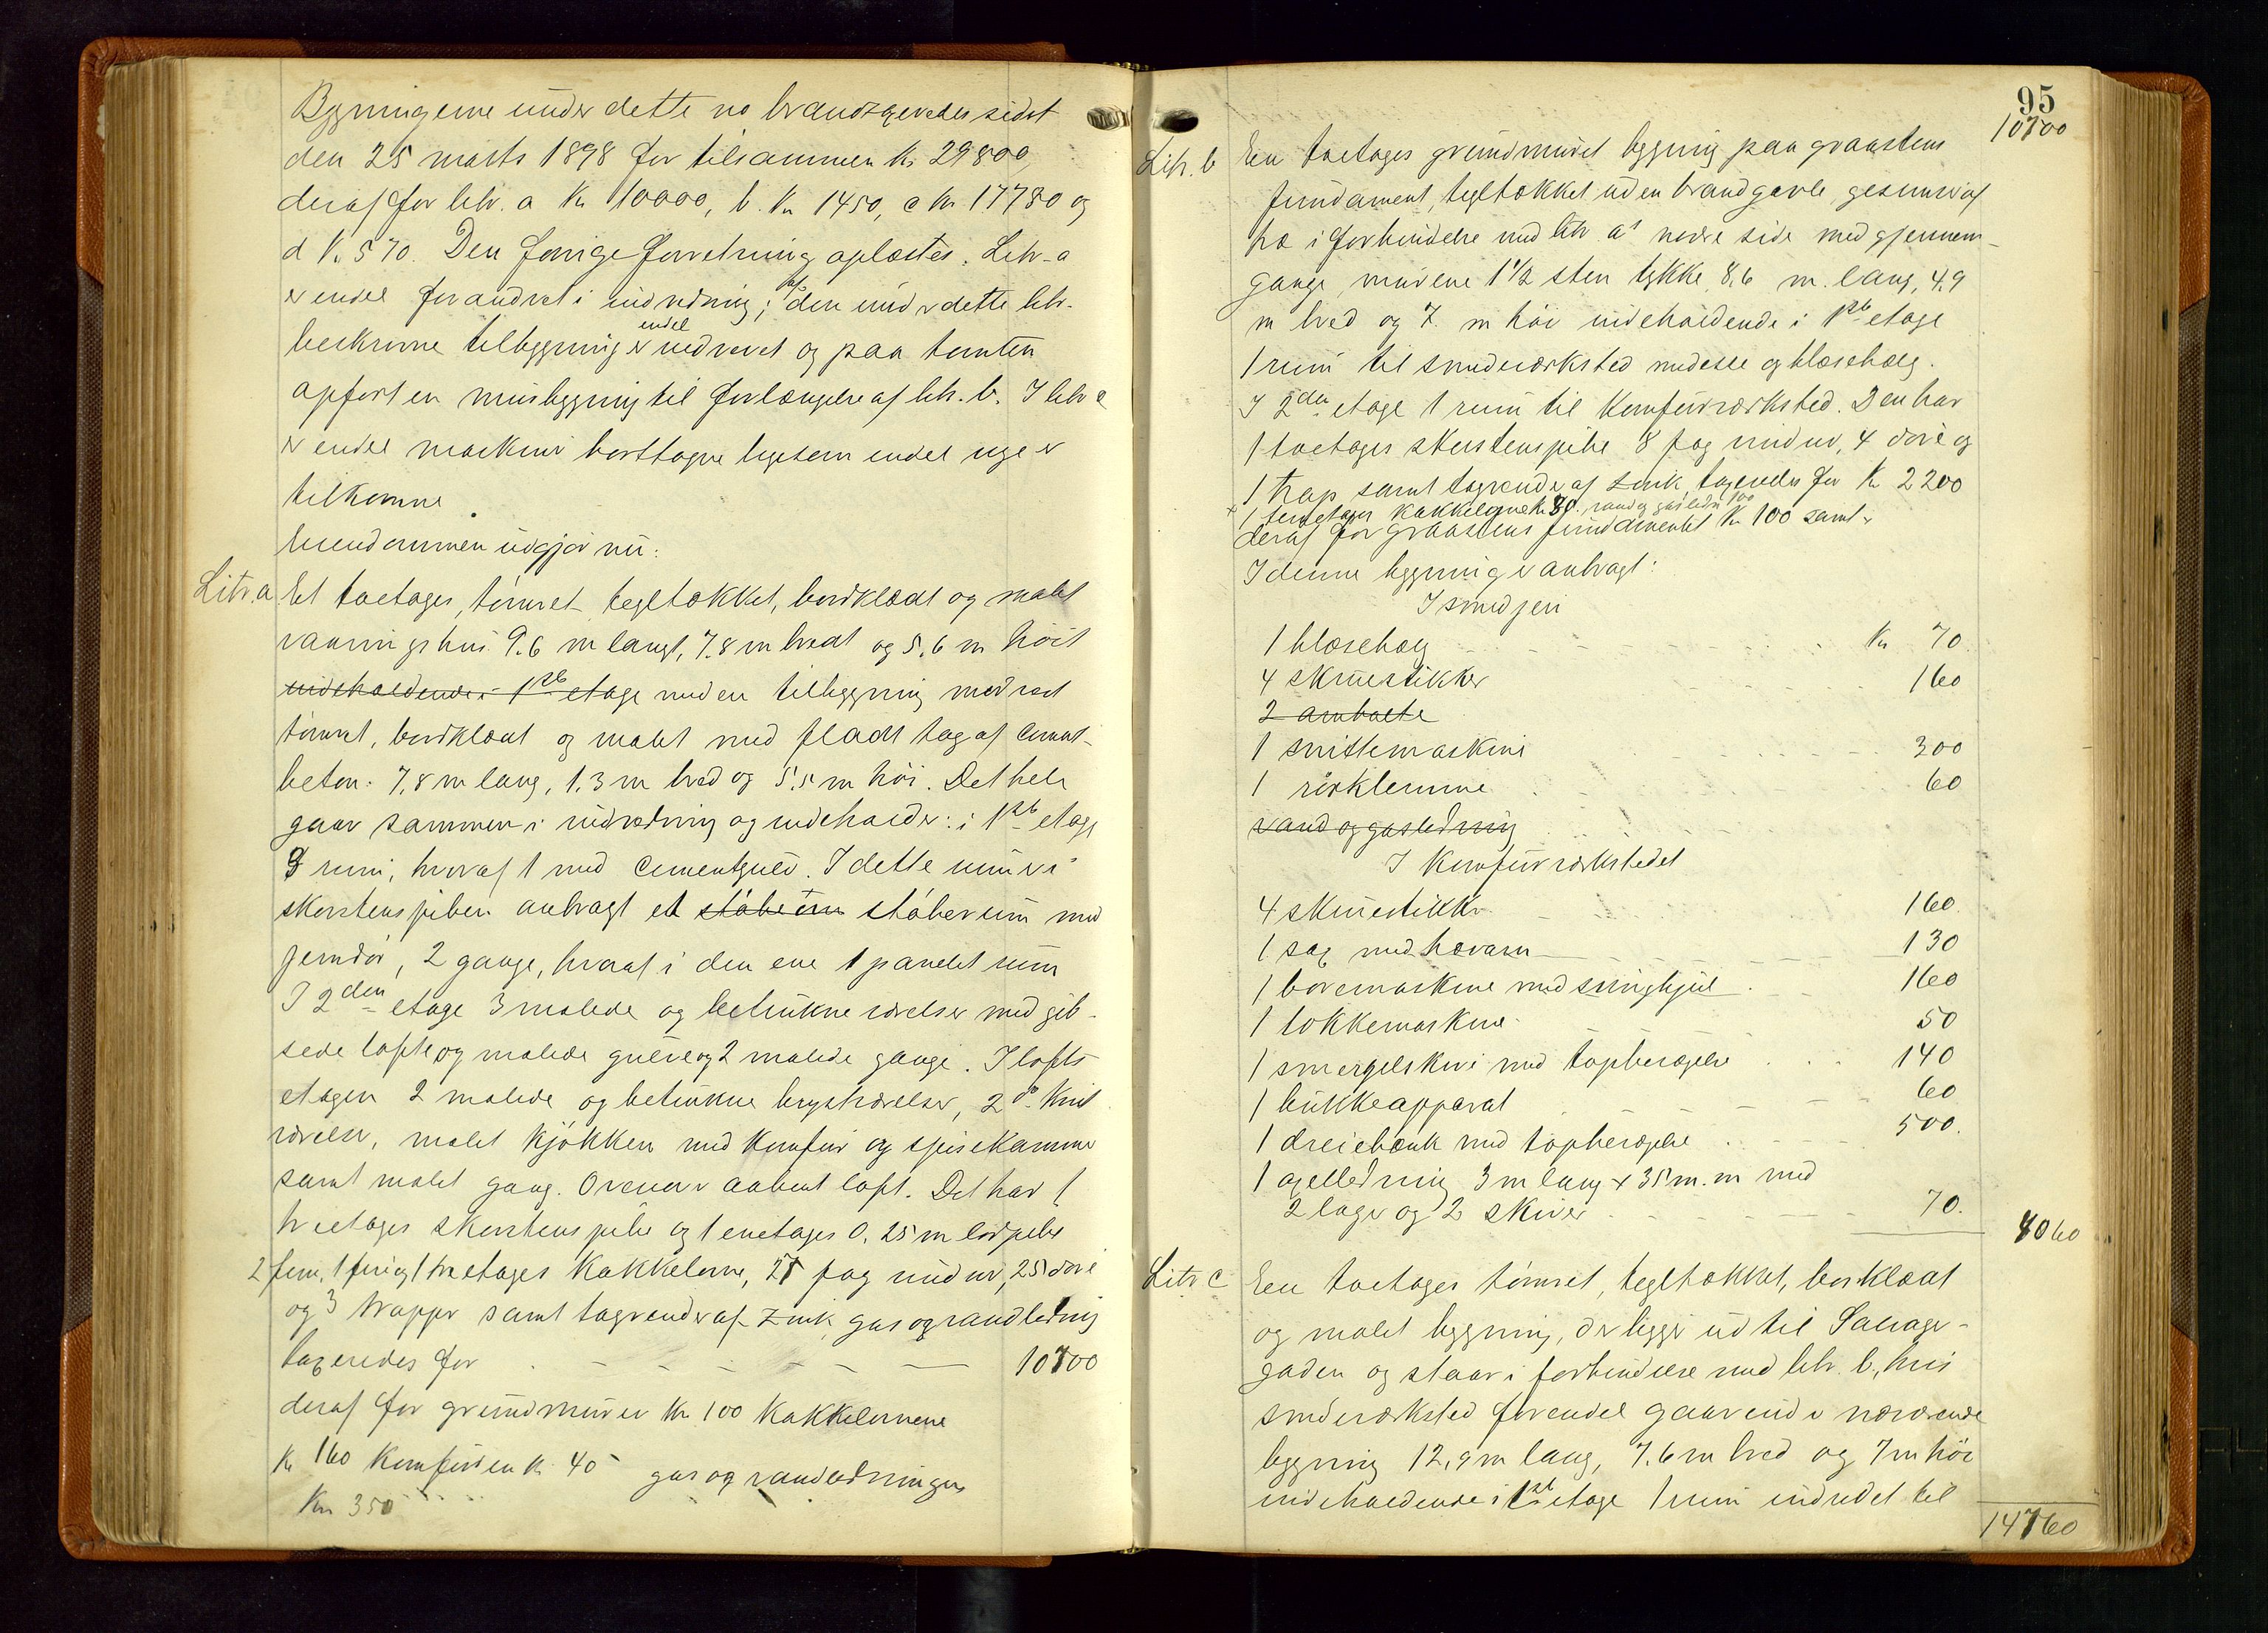 Bygningerne under dette no brandtaxeredes sidst
den 25 marts 1898 for tilsammen Kr 29800,
deraf for litr. a Kr 10000, b. Kr 1450, c Kr 17780 og
d Kr 570. Den forrige forretning oplæstes. Litr. a
er endel forandret i indredning; af den under dette litr.
beskrevne tilbygning er endel nedrevet og paa tomten
opført en mursbygning til forlængelse af litr. b. I litr c
er endel maskiner borttagne ligesom endel nye er
tilkomne.
Eiendommen udgjør nu:
Litr. a Et toetages, tømret tegltækket, bordklædt og malet
vaaningshus 9.6 m langt, 7.8 m bredt og 5,6 m høit
indeholdende i 1ste etage med en tilbygning mod
tømret, bordklædt og malet med fladt tag af cement-
beton. 7,8 m lang, 1,3 m bred og 5,5 m høi. Det hele
gaar sammen i indredning og indeholder: i 1ste etage
9 rum, hvoraf 1 med cementgulv. I dette rum er i
skorstenspiben anbragt et støberum med
jerndør, 2 gange, hvoraf i den ene 1 panelet rum
I 2den etage 3 malede og betrukne værelser med gib-
sede lofte og malede gulve og 2 malede gange. I lofts
etagen 2 malede og betrukne brystværelser, 2 do. kvist
værelser, malet kjøkken med komfur og spisekammer
samt malet gang. Ovenover aabent loft. Det har 1
treetages skorstenspibe og 1 enetages 0,25 m lerpibe
2 fem, 1 fir og 1 tre etages kakkelovne, 27 fag vinduer, 25 døre
og 3 trapper samt tagrender af zink, gas og vandledning
taxeredes for 10700
deraf for grundmuren Kr 100 kakkelovnene
Kr 160 komfuren Kr 40 gas og vandledningen
Kr 350
95
10700
Litr. b En toetages grundmuret bygning paa graastens
fundament, tegltækket uden brandgavle, gesims af
træ i forbindelse med litr a's nedre side med gjennem-
gange, murene 1 1/2 sten tykke, 8,6 m. lang, 4,9
m bred og 7. m høi indeholdende i 1ste etage
1 rum til smedeværksted med esse og blæsebælg.
I 2den etage 1 rum til komfurværksted. Den har
1 toetages skorstenspibe 8 fag vinduer, 4 døre og
1 trap samt tagrender af zink taxeredes for Kr 2200
deraf for graastens fundamentet Kr 100 samt
x 1 kakkelovne Kr 80. vand og gasledn 100
I denne bygning er anbragt:
I smedjen
1 blæsebælg Kr 70.
4 skruestikker 160
2 ambolte
1 snittemaskine 300
1 rørklemme 60
vand og gasledning
I komfurværkstedet
4 skruestikker 160.
1 sax med hævarm 130
1 boremaskine med svinghjul 160
1 lokkemaskine 50
1 smergelskive med topbevægelse 140
1 bukkeapparat 60
1 dreiebænk med topbevægelse 500.
1 axelledning 3 m lang x 35 m.m med
2 lager og 2 skiver 70.
4060
Litr c En toetages tømret, tegltækket, bordklædt
og malet bygning, der ligger ud til
gaden og staar i forbindelse med litr. b, hvis
smedeværksted for endel gaar ind i nærværende
bygning 12,9 m lang, 7,6 m bred og 7 m høi
indeholdende i 1ste etage 1 rum indredet til
14760